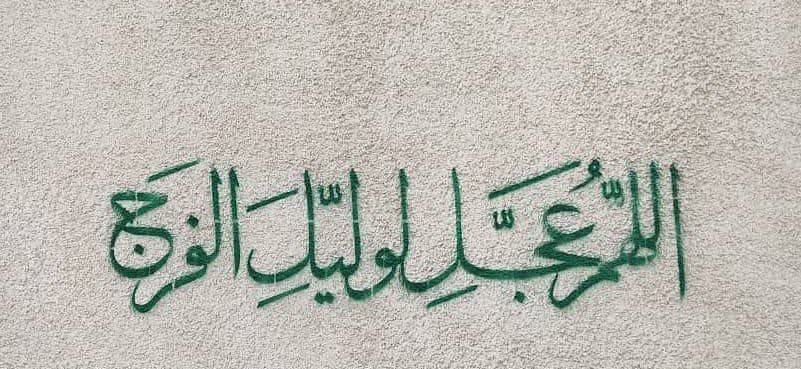 اللّهُمَّ عَجِّلِ لوليِّكَ الفرَج